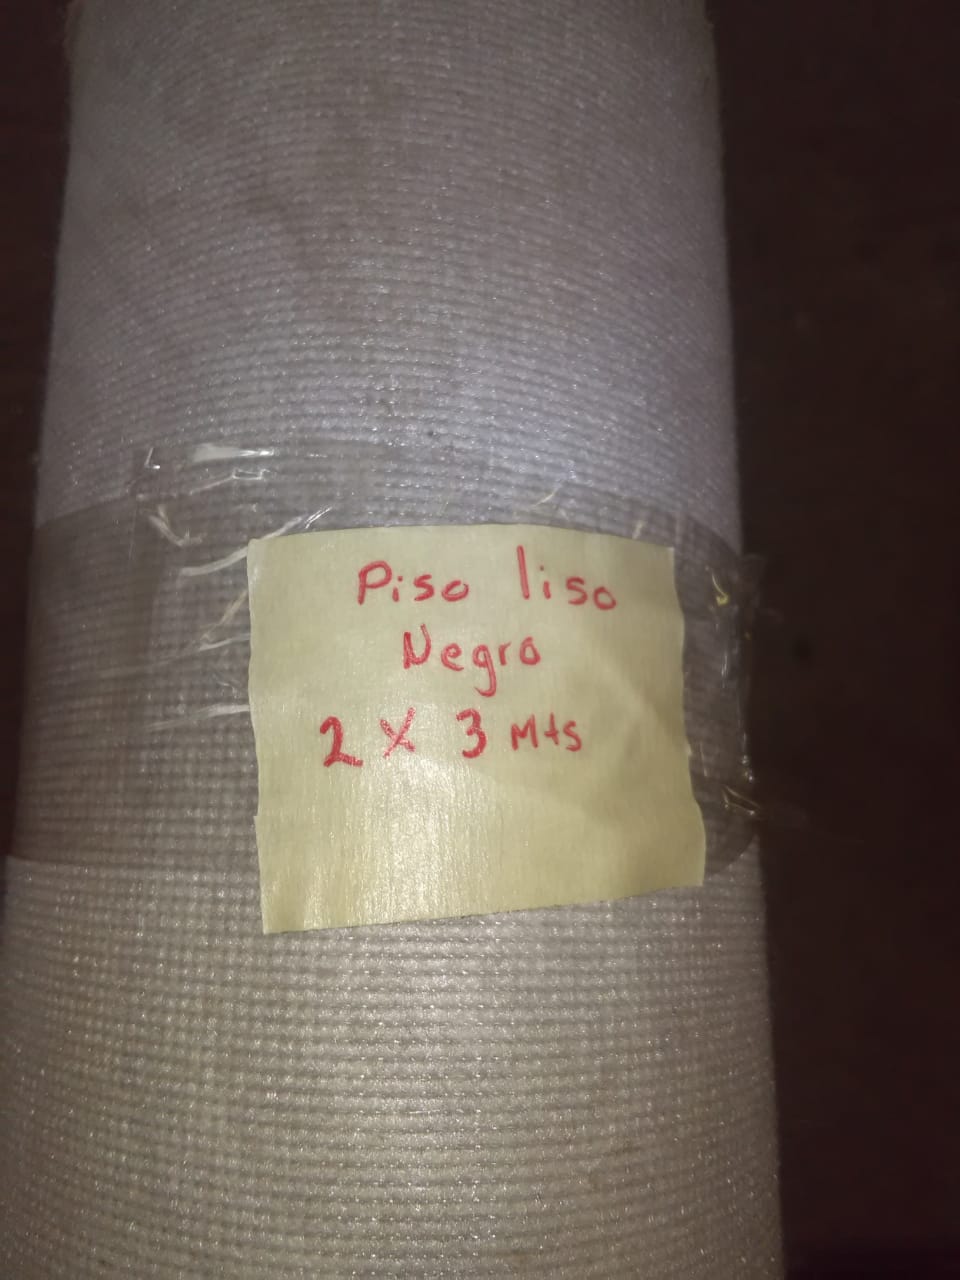 Piso liso
Negro
2 X 3 Mts